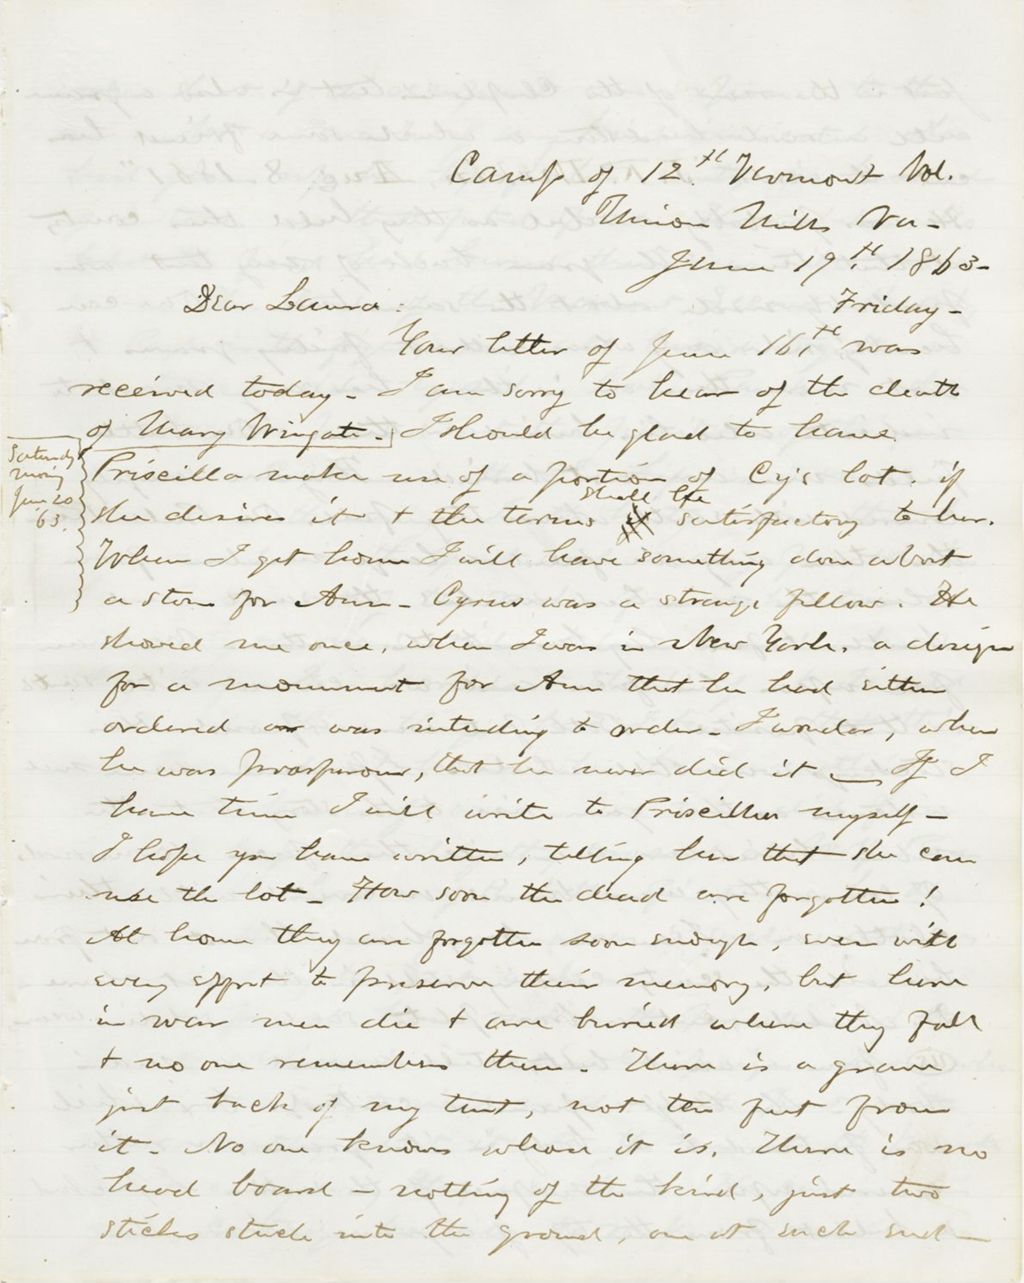 Camp of 12th Vermont Vol.
Union Mills Va-
June 19th 1863-
Friday-
Dear Laura:
Your letter of June 16th was
received today- I am sorry to hear of the death
of Mary Wingate- I should be glad to have
Saturday
morning
June 20
'63.
Priscilla make use of a portion of Cy's lot, if
she desires it & the terms shall be satisfactory to her.
When I get home I will have something done about
a stone for Ann- Cyrus was a strange fellow. He
showed me once, when I was in New York, a design
for a monument for Ann that he had either
ordered or was intending to order- I wonder, when
he was prosperous, that he never did it - If I
have time I will write to Priscilla myself-
I hope you have written, telling her that she can
use the lot- How soon the dead are forgotten!
At home they are forgotten soon enough, even with
every effort to preserve their memory, but here
in war men die & are buried where they fall
& no one remembers them- There is a grave
just back of my tent, not ten feet from
it- No one knows whose it is. There is no
head board - nothing of the kind, just two
sticks stuck into the ground, one at each end-